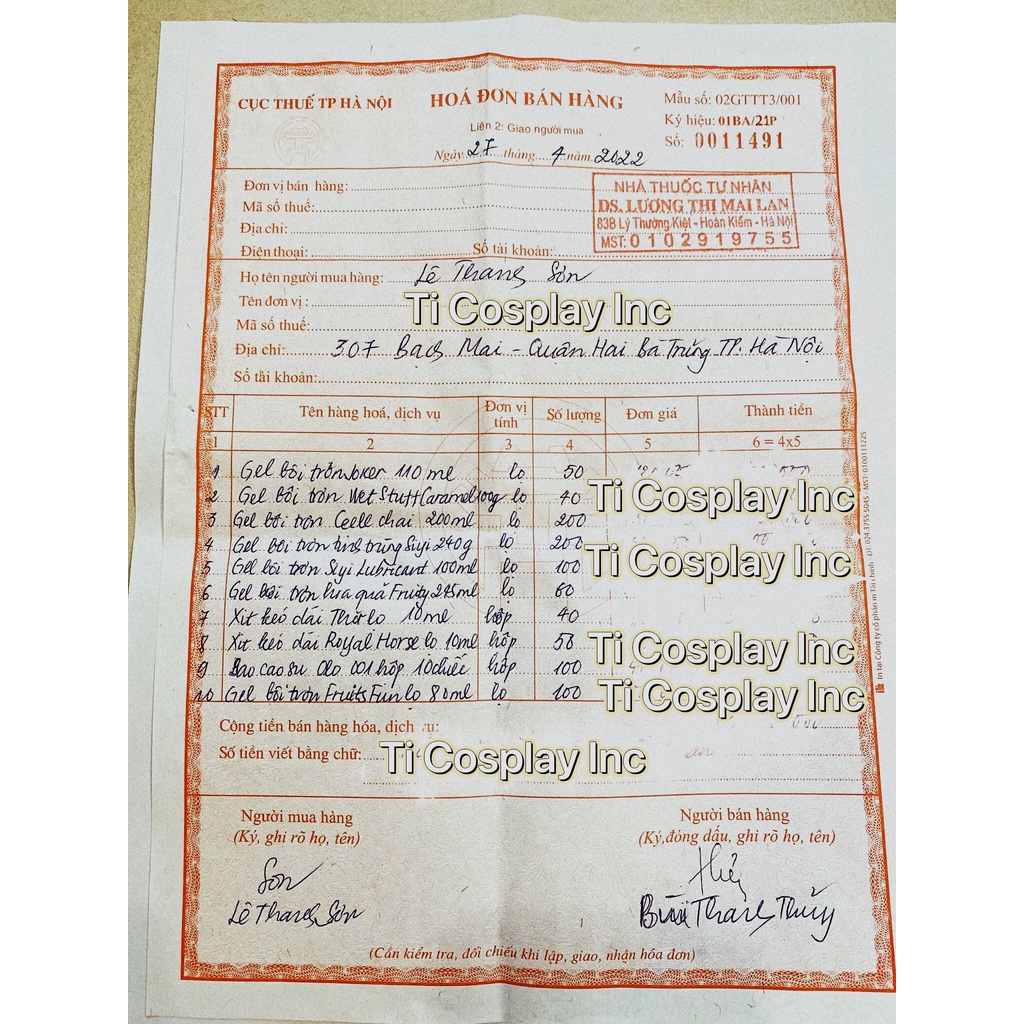 CỤC THUẾ TP HÀ NỘI
HOÁ ĐƠN BÁN HÀNG
Liên 2: Giao người mua
Ngày 27 tháng 4 năm 2022
Mẫu số: 02GTTT3/001
Ký hiệu: 01BA/21P
Số: 0011491
Đơn vị bán hàng:
Mã số thuế:
Địa chỉ:
Điện thoại: Số tài khoản:
NHÀ THUỐC TƯ NHÂN
DS. LƯƠNG THỊ MAI LAN
83B Lý Thường Kiệt - Hoàn Kiếm - Hà Nội
MST: 0102919755
Họ tên người mua hàng: Lê Thanh Sơn
Tên đơn vị:
Ti Cosplay Inc
Mã số thuế:
Địa chỉ: 307 Bạch Mai - Quận Hai Bà Trưng TP. Hà Nội
Số tài khoản:
STT Tên hàng hoá, dịch vụ Đơn vị tính Số lượng Đơn giá Thành tiền
1 2 3 4 5 6 = 4x5
1 Gel bôi trơn 110 ml lọ 50
2 Gel bôi trơn Wet Stuff Caramel 100g lọ 40
Ti Cosplay Inc
3 Gel bôi trơn Ceell chai 200ml lọ 200
4 Gel bôi trơn tinh trùng Siyi 240g lọ 200
Ti Cosplay Inc
5 Gel bôi trơn Siyi Lubricant 100ml lọ 100
6 Gel bôi trơn hoa quả Fruity 245ml lọ 60
7 Xịt kéo dài lọ 10ml hộp 40
8 Xịt kéo dài Royal Horse lọ 10ml hộp 50
Ti Cosplay Inc
9 Bao cao su Olo 001 hộp 10 chiếc hộp 100
10 Gel bôi trơn Fruits Fun lọ 80ml lọ 100
Ti Cosplay Inc
Cộng tiền bán hàng hóa, dịch vụ:
Số tiền viết bằng chữ:
Ti Cosplay Inc
Người mua hàng
(Ký, ghi rõ họ, tên)
Sơn
Lê Thanh Sơn
Người bán hàng
(Ký, đóng dấu, ghi rõ họ, tên)
Thủy
Bùi Thanh Thủy
(Cần kiểm tra, đối chiếu khi lập, giao, nhận hóa đơn)